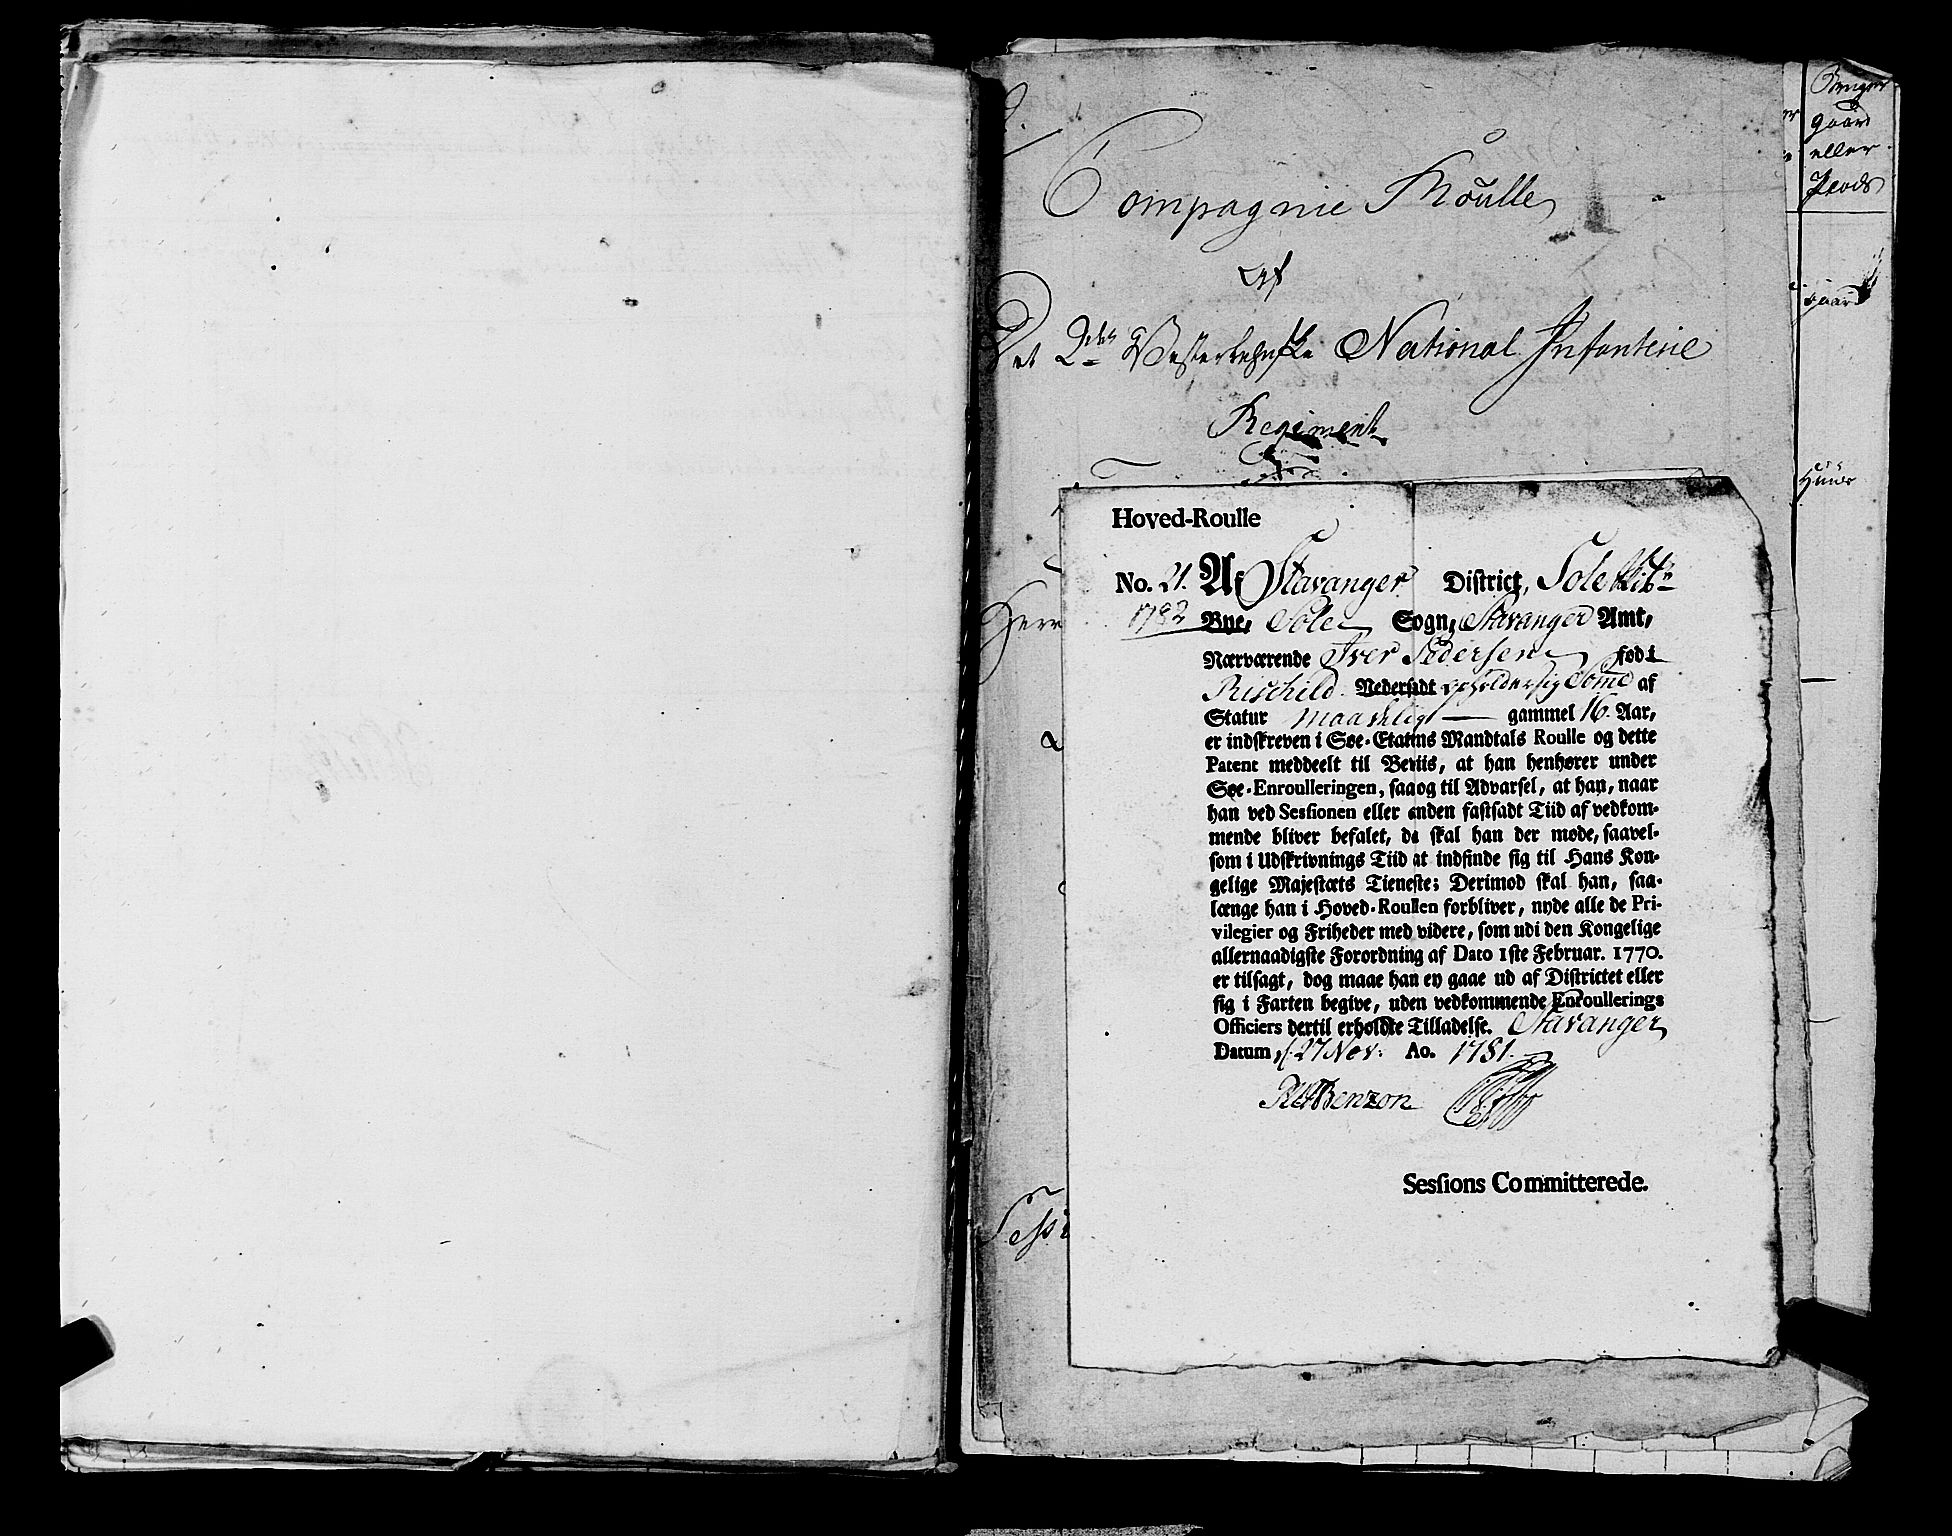 Compagnie Roulle
af
Det 2den Vesterlehnske National Infanterie
Regiment
Herr
Sessi
Bruger
gaard
eller
Plads
gaard
Huus
Hoved-Roulle
No. 21. Af Stavanger District, Sole Skib:
1782 Bye, Sole Sogn, Stavanger Amt,
Nærværende Iver Pedersen fød i
Rischild Vedersadt opholder sig Somme af
Statur maadelig gammel 16. Aar,
er indskreven i Søe-Etatens Mandtals Roulle og dette
Patent meddeelt til Beviis, at han henhører under
Søe-Enroulleringen, saaog til Advarsel, at han, naar
han ved Sessionen eller anden fastsadt Tiid af vedkom-
mende bliver befalet, da skal han der møde, saavel-
som i Udskrivnings Tiid at indfinde sig til Hans Kon-
gelige Majestæts Tieneste; Derimod skal han, saa-
længe han i Hoved-Roullen forbliver, nyde alle de Pri-
vilegier og Friheder med videre, som udi den Kongelige
allernaadigste Forordning af Dato 1ste Februar. 1770.
er tilsagt, dog maae han ey gaae ud af Districtet eller
sig i Farten begive, uden vedkommende Enroullerings
Officiers dertil erholdte Tilladelse. Stavanger
Datum, d. 27 Nov: Ao. 1781.
Benzon
Sessions Committerede.